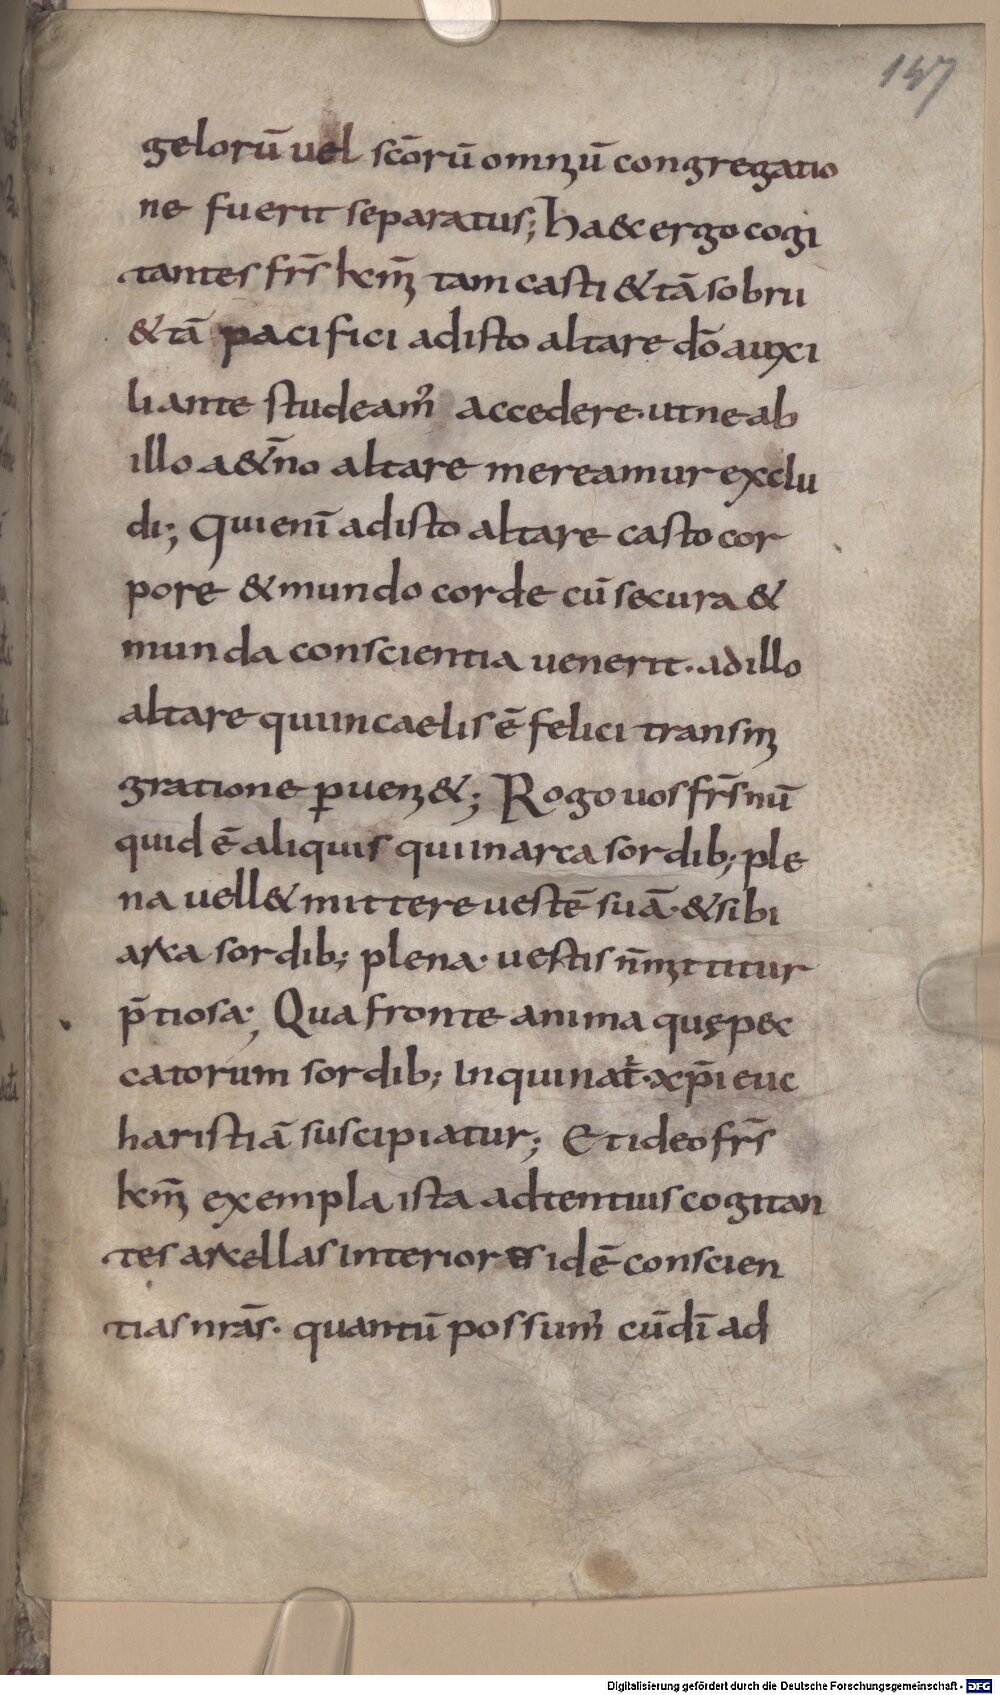 147
gelorū uel scōrū omniū congregatio
ne fuerit separatus; ha&c ergo cogi
tantes frs̄ km̄i tam casti & tā sobrii
& tā pacifici ad isto altare dō auxi
liante studeam᾿ accedere· ut ne ab
illo a&̄no altare mereamur exclu
di; Qui enī ad isto altare casto cor
pore & mundo corde cū secura &
munda conscientia uenerit· ad illo
altare qui in caelis ē felici transmi
gratione ꝑueni&; Rogo uos frs̄ nū
quid ē aliquis qui in arca sordib; ple
na uell& mittere uestē suā· & si bi
arca sordib; plena· uestis n̄ mittitur
p̄tiosa; Qua fronte anima quę pec
catorum sordib; Inquinat̄· xp̄i euc
haristiā suscipiatur; Et ideo frs̄
km̄i exempla ista adtentius cogitan
tes arcellas interiores id ē conscien
tias nrās· quantū possum᾿ cū dī ad
Digitalisierung gefördert durch die Deutsche Forschungsgemeinschaft - DFG